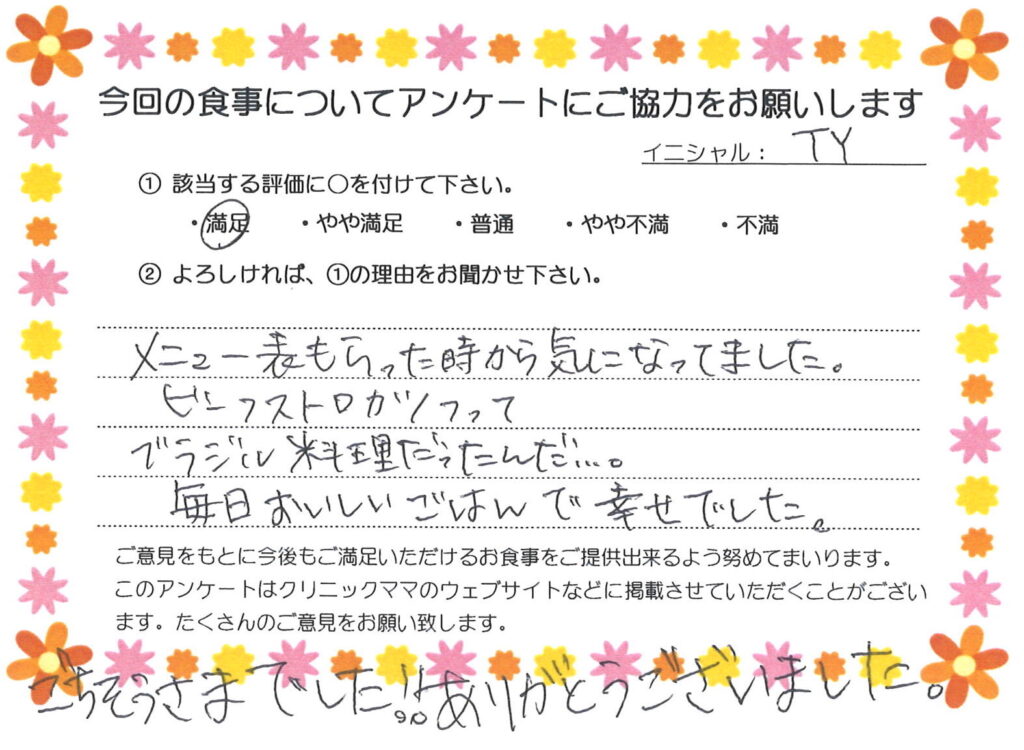 今回の食事についてアンケートにご協力をお願いします
イニシャル： TY
① 該当する評価に○を付けて下さい。
・満足 ・やや満足 ・普通 ・やや不満 ・不満
② よろしければ、①の理由をお聞かせ下さい。
メニュー表もらった時から気になってました。
ビーフストロガノフって
ブラジル料理だったんだ…。
毎日おいしいごはんで幸せでした。
ご意見をもとに今後もご満足いただけるお食事をご提供出来るよう努めてまいります。
このアンケートはクリニックママのウェブサイトなどに掲載させていただくことがござい
ます。たくさんのご意見をお願い致します。
ごちそうさまでした!!ありがとうございました。